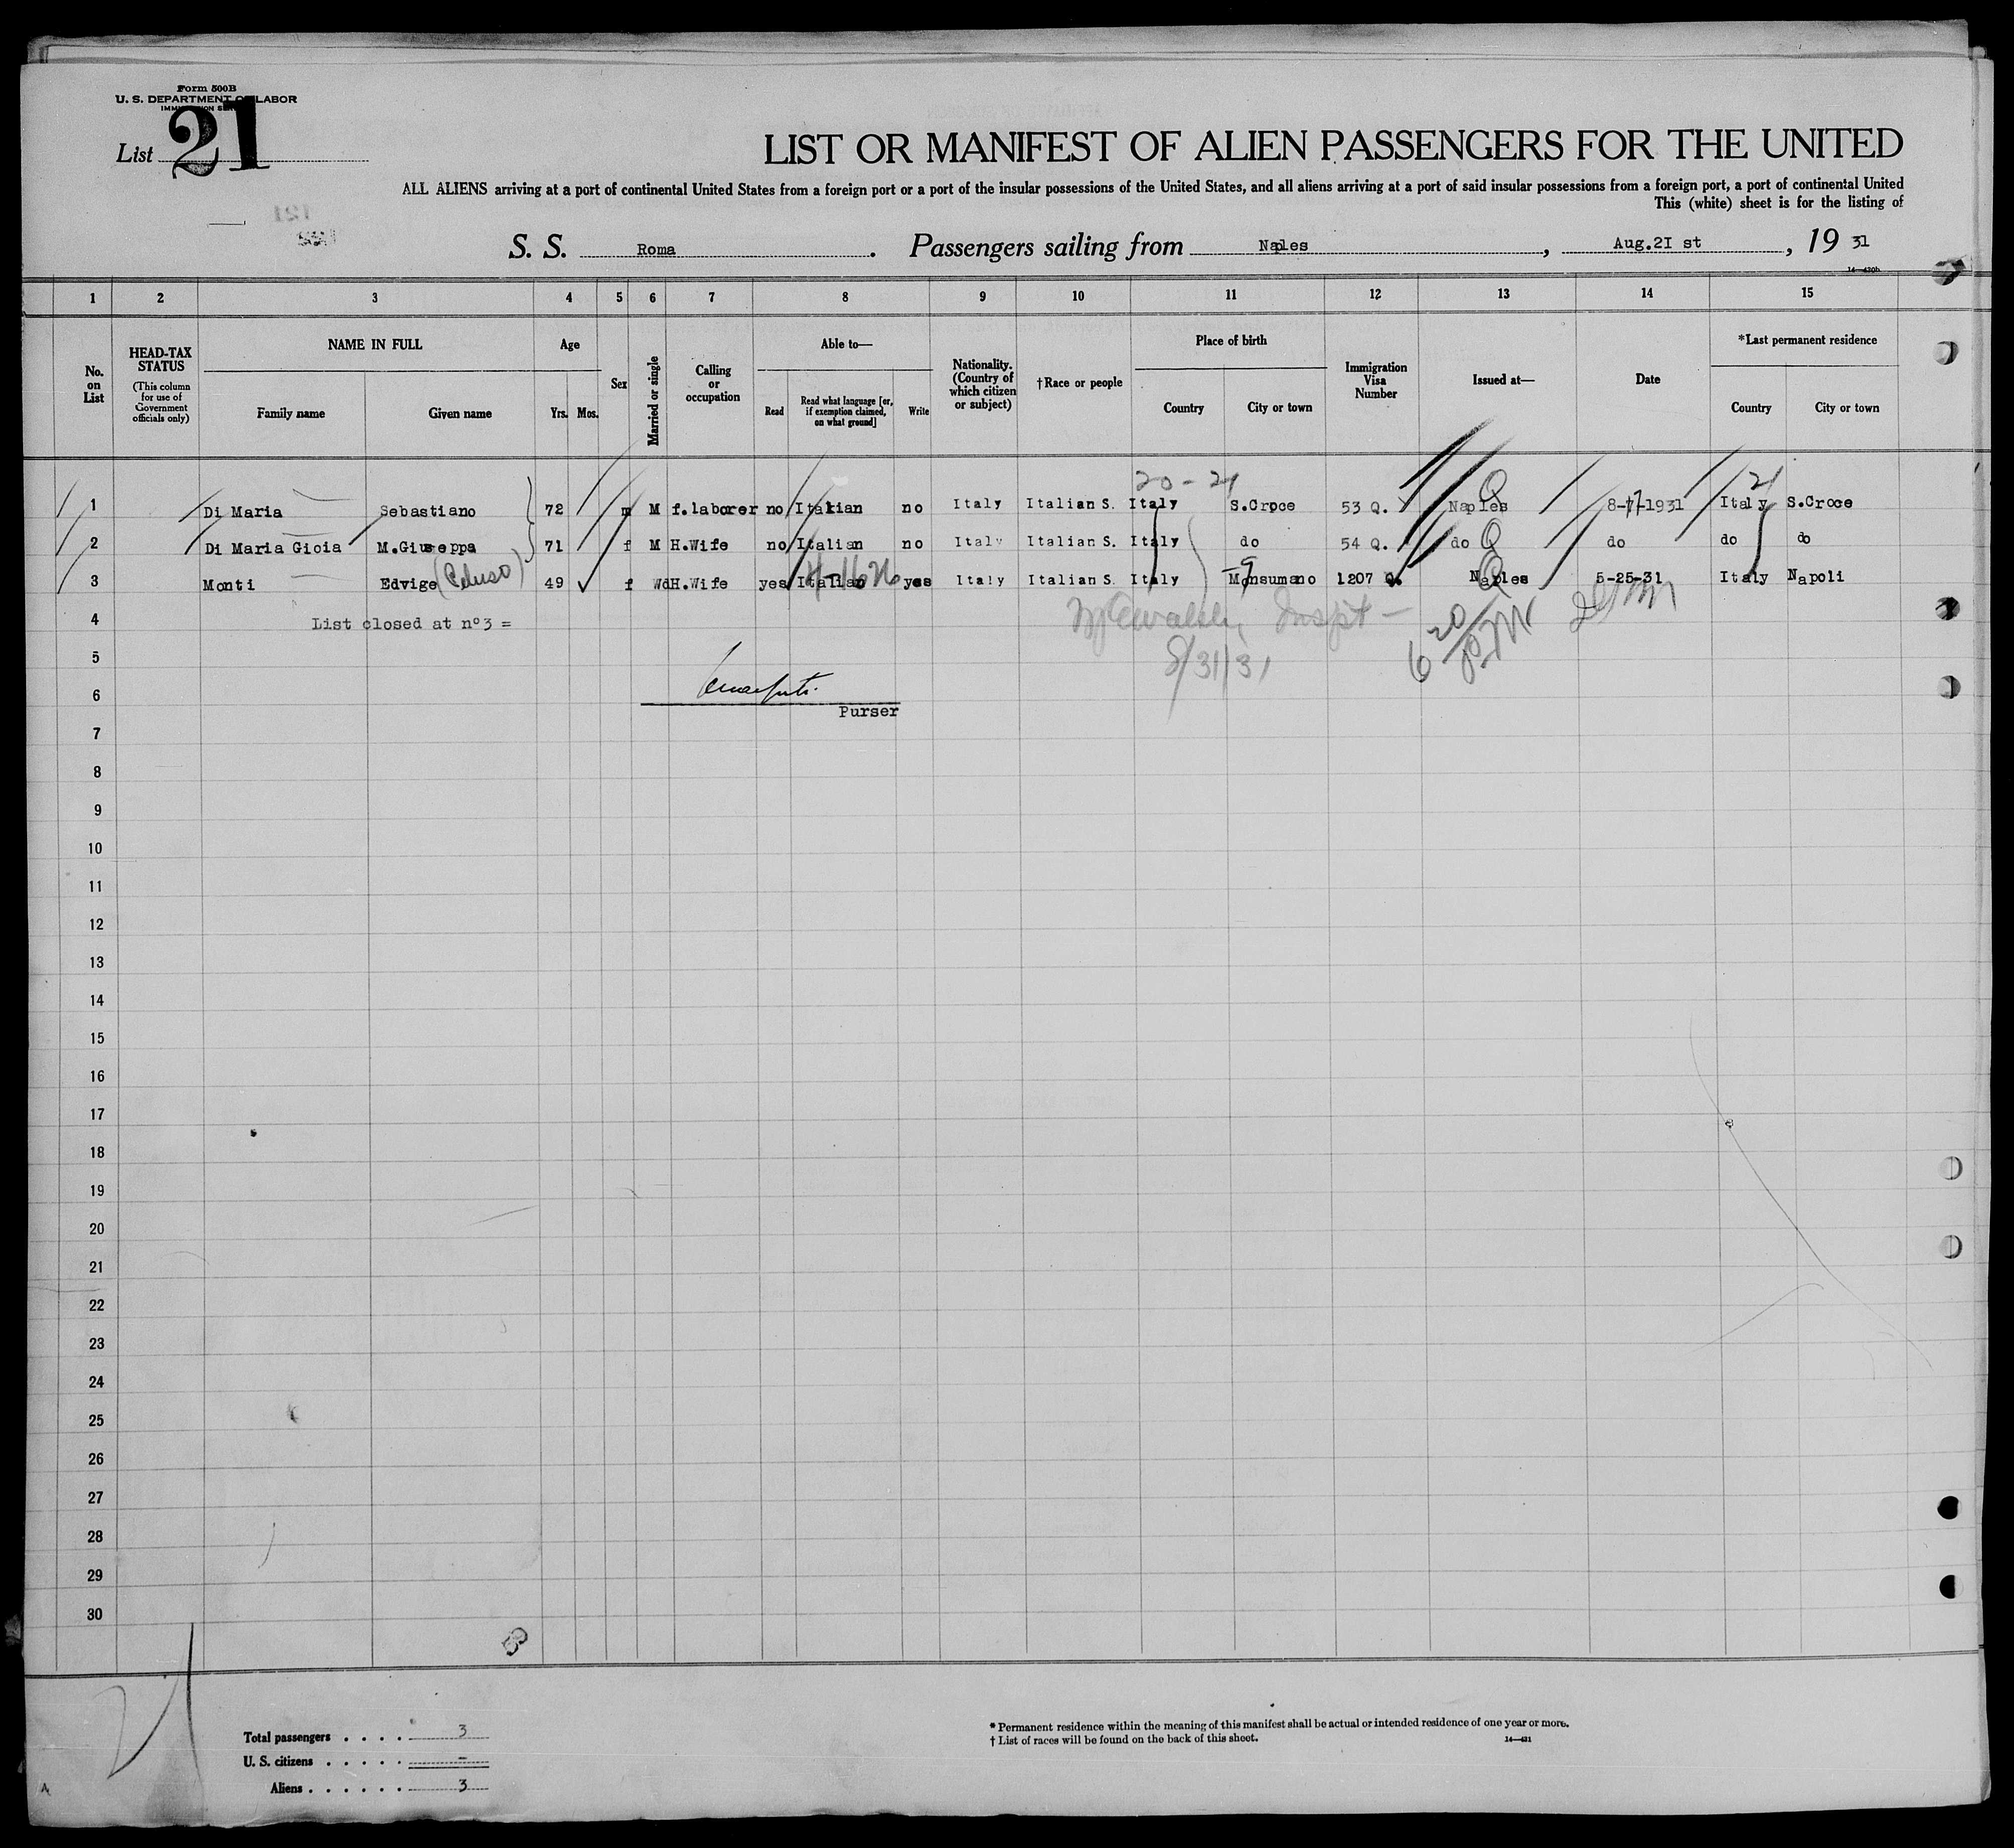 Form 500B
U. S. DEPARTMENT OF LABOR
List 21
LIST OR MANIFEST OF ALIEN PASSENGERS FOR THE UNITED
ALL ALIENS arriving at a port of continental United States from a foreign port or a port of the insular possessions of the United States, and all aliens arriving at a port of said insular possessions from a foreign port, a port of continental United
This (white) sheet is for the listing of
S. S. Roma. Passengers sailing from Naples, Aug.2I st, 19 31
14—430b
1 2 3 4 5 6 7 8 9 10 11 12 13 14 15
No. on List
HEAD-TAX STATUS
(This column for use of Government officials only)
NAME IN FULL
Family name Given name
Age
Yrs. Mos.
Sex
Married or single
Calling or occupation
Able to—
Read
Read what language [or, if exemption claimed, on what ground]
Write
Nationality. (Country of which citizen or subject)
†Race or people
Place of birth
Country City or town
Immigration Visa Number
Issued at—
Date
*Last permanent residence
Country City or town
20 - 21 21
1 Di Maria Sebastiano 72 m M f.laborer no Italian no Italy Italian S. Italy S.Croce 53 Q. Naples Q 8-17-1931 Italy S.Croce
2 Di Maria Gioia M.Giuseppa 71 f M H.Wife no Italian no Italy Italian S. Italy do 54 Q. do Q do do do
3 Monti Edvige 49 f Wd H.Wife yes Italian yes Italy Italian S. Italy Monsumano 1207 Q. Naples Q 5-25-31 Italy Napoli
4 List closed at nº3 =
Inspt -
5
8/31/31
6
Purser
7
8
9
10
11
12
13
14
15
16
17
18
19
20
21
22
23
24
25
26
27
28
29
30
Total passengers . . . . 3
U. S. citizens . . . . . –
Aliens . . . . . . 3
* Permanent residence within the meaning of this manifest shall be actual or intended residence of one year or more.
† List of races will be found on the back of this sheet.
14—431